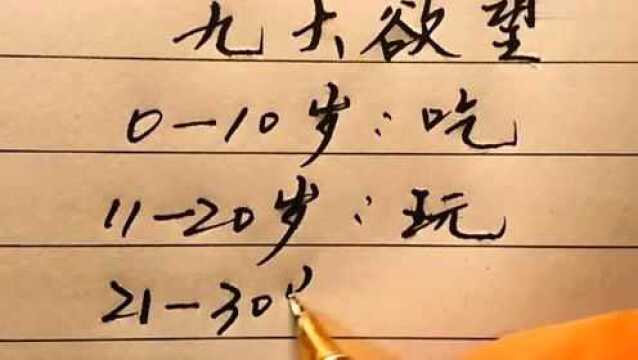 九大欲望
0-10岁:吃
11-20岁:玩
21-30